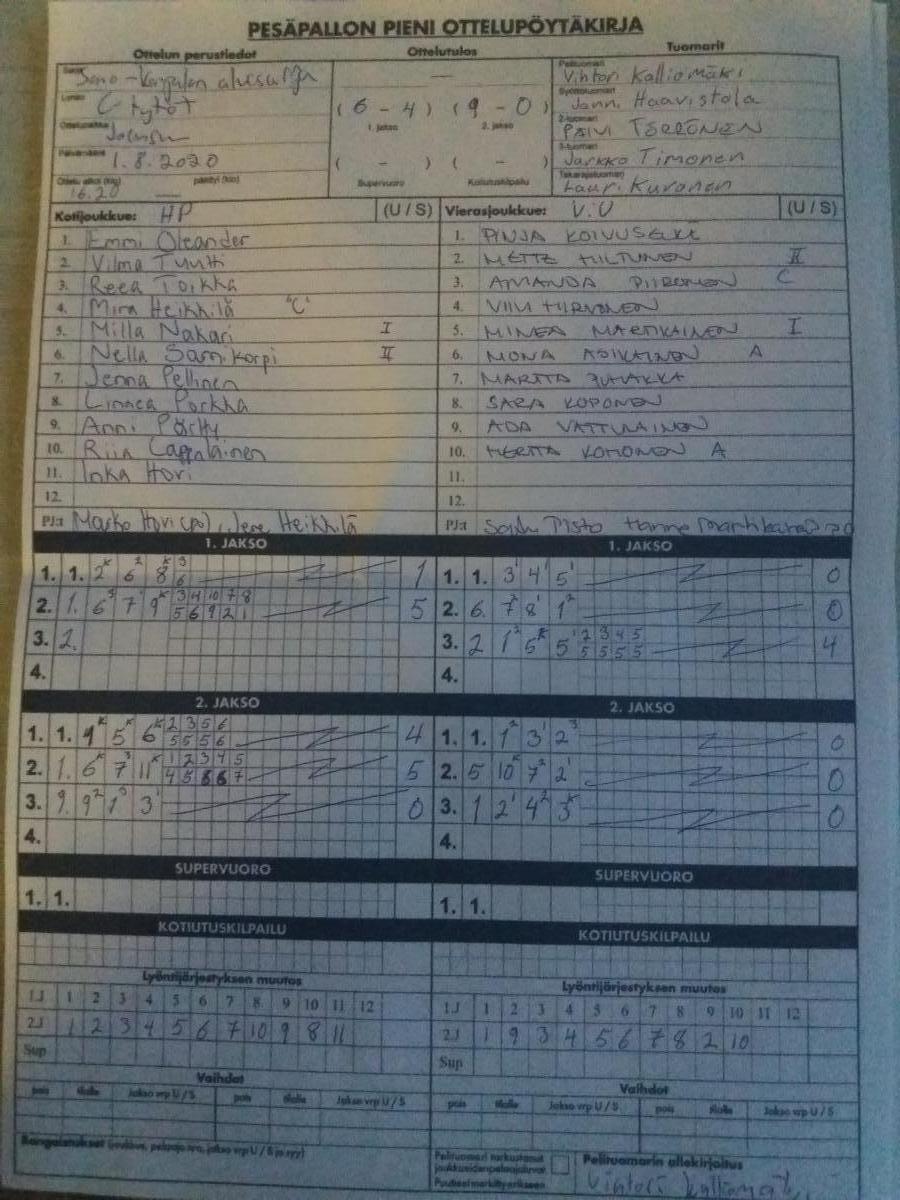 PESÄPALLON PIENI OTTELUPÖYTÄKIRJA
Ottelun perustiedot Ottelutulos Tuomarit
Sarja
Lohko C tytöt
Ottelupaikka
Päivämäärä 1.8.2020
Ottelu alkoi (klo) 16.20 päättyi (klo)
( 6 - 4 ) ( 9 - 0 )
1. jakso 2. jakso
( - ) ( - )
Supervuoro Kotiutuskilpailu
Pelituomari Vihtori Kalliomäki
Syöttötuomari Haavistola
2-tuomari PÄIVI
3-tuomari Jarkko Timonen
Takarajatuomari Lauri Kuronen
Kotijoukkue: HP (U / S)
1. Emmi Oleander
2. Vilma Tuutti
3. Reea Toikka
4. Mira Heikkilä "C"
5. Milla Nakari I
6. Nella Samikorpi II
7. Jenna Pellinen
8. Linnea Porkka
9. Anni
10. Riia
11. Inka Hovi
12.
PJ:t Marko Hovi (pj), Jere Heikkilä
Vierasjoukkue: ViU (U / S)
1. PINJA
2. METTE HILTUNEN II
3. AMANDA PIIRONEN C
4. HIRVONEN
5. MINEA MARTIKAINEN I
6. MONA ASIKAINEN A
7. MARTTA
8. SARA KOPONEN
9. ADA VATTULAINEN
10. HERTTA KOMONEN A
11.
12.
PJ:t
1. JAKSO
1. 1. 2 k 6 2 8 k 3 6 1
2. 1. 6 3 7 1 9 k 3 4 10 7 8 5 6 9 2 1 5
3. 2.
4.
1. JAKSO
1. 1. 3 1 4 1 5 1 0
2. 6. 7 2 8 1 1 2 0
3. 2 1 2 5 k 5 1 2 3 4 5 5 5 5 5 4
4.
2. JAKSO
1. 1. 1 k 5 k 6 k 2 3 5 6 5 5 5 6 4
2. 1. 6 k 7 3 11 k 1 2 3 4 5 4 5 6 6 7 5
3. 9. 9 2 1 3 3 1 0
4.
2. JAKSO
1. 1. 1 2 3 1 2 3 0
2. 5 10 k 7 2 2 1 0
3. 1 2 1 4 2 3 k 0
4.
SUPERVUORO
1. 1.
SUPERVUORO
1. 1.
KOTIUTUSKILPAILU
KOTIUTUSKILPAILU
Lyöntijärjestyksen muutos
1J 1 2 3 4 5 6 7 8 9 10 11 12
2J 1 2 3 4 5 6 7 10 9 8 11
Sup
Lyöntijärjestyksen muutos
1J 1 2 3 4 5 6 7 8 9 10 11 12
2J 1 9 3 4 5 6 7 8 2 10
Sup
Vaihdot
pois tilalle Jakso vrp U / S pois tilalle Jakso vrp U / S
Vaihdot
pois tilalle Jakso vrp U / S pois tilalle Jakso vrp U / S
Rangaistukset (joukkue, pelaaja nro, jakso vrp U / S ja syy)
Pelituomari tarkastanut
joukkueiden pelaajaluvat
Puutteet merkitty erikseen
Pelituomarin allekirjoitus